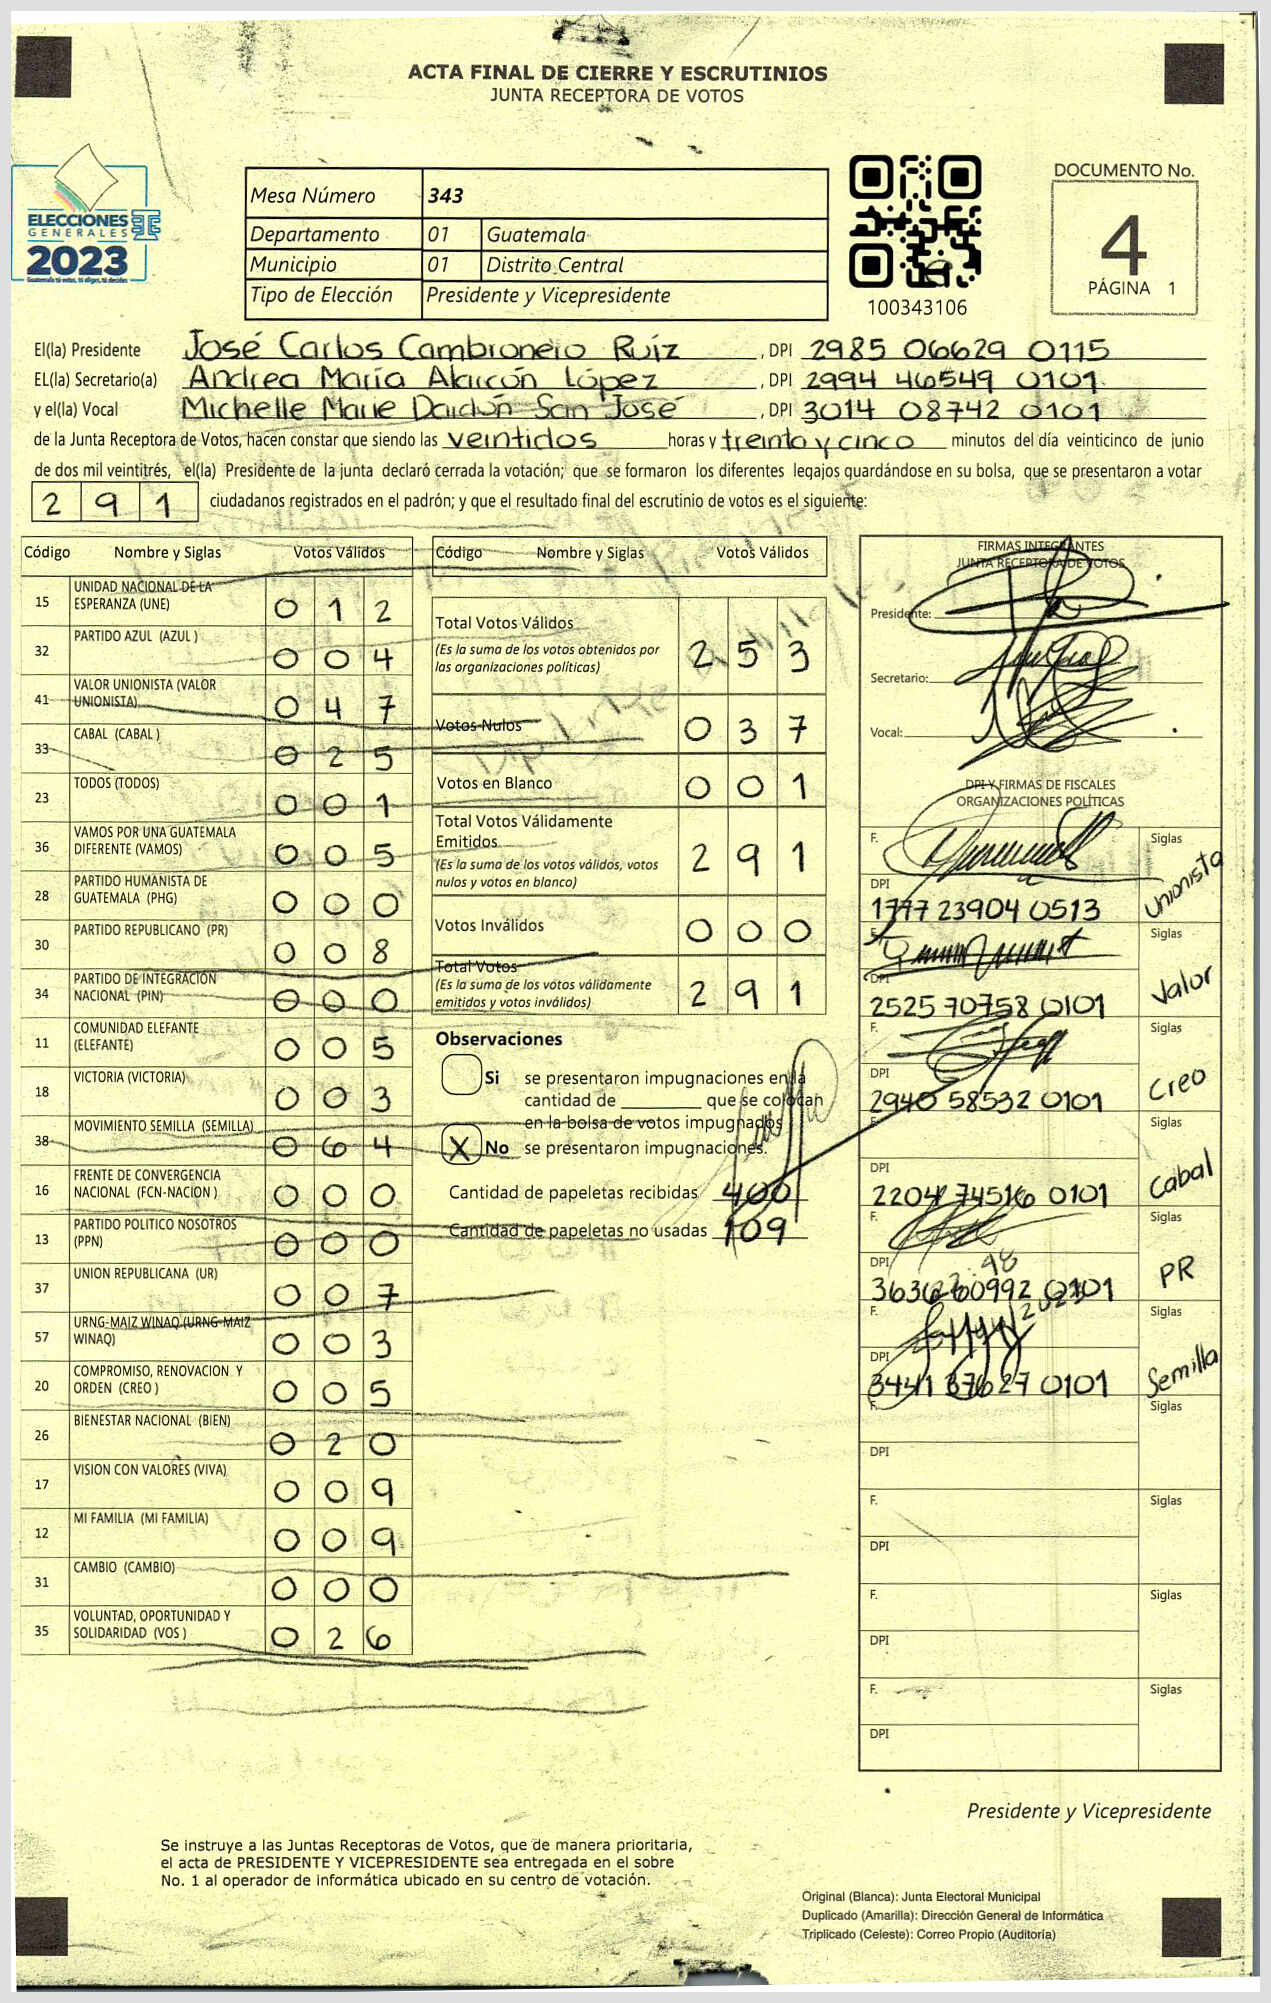 ACTA FINAL DE CIERRE Y ESCRUTINIOS
JUNTA RECEPTORA DE VOTOS
ELECCIONES
GENERALES
2023
Guatemala tú votas, tú eliges, tú decides
Mesa Número 343
Departamento 01 Guatemala
Municipio 01 Distrito Central
Tipo de Elección Presidente y Vicepresidente
100343106
DOCUMENTO No.
4
PÁGINA 1
El(la) Presidente José Carlos Cambronero Ruíz, DPI 2985 06629 0115
EL(la) Secretario(a) Andrea María Alarcón López, DPI 2994 46549 0101
y el(la) Vocal Michelle Marie Dardón San José, DPI 3014 08742 0101
de la Junta Receptora de Votos, hacen constar que siendo las veintidos horas y treinta y cinco minutos del día veinticinco de junio
de dos mil veintitrés, el(la) Presidente de la junta declaró cerrada la votación; que se formaron los diferentes legajos guardándose en su bolsa, que se presentaron a votar
291 ciudadanos registrados en el padrón; y que el resultado final del escrutinio de votos es el siguiente:
Código Nombre y Siglas Votos Válidos
15 UNIDAD NACIONAL DE LA ESPERANZA (UNE) 012
32 PARTIDO AZUL (AZUL ) 004
41 VALOR UNIONISTA (VALOR UNIONISTA) 047
33 CABAL (CABAL ) 025
23 TODOS (TODOS) 001
36 VAMOS POR UNA GUATEMALA DIFERENTE (VAMOS) 005
28 PARTIDO HUMANISTA DE GUATEMALA (PHG) 000
30 PARTIDO REPUBLICANO (PR) 008
34 PARTIDO DE INTEGRACIÓN NACIONAL (PIN) 000
11 COMUNIDAD ELEFANTE (ELEFANTE) 005
18 VICTORIA (VICTORIA) 003
38 MOVIMIENTO SEMILLA (SEMILLA) 064
16 FRENTE DE CONVERGENCIA NACIONAL (FCN-NACION ) 000
13 PARTIDO POLITICO NOSOTROS (PPN) 000
37 UNION REPUBLICANA (UR) 007
57 URNG-MAIZ WINAQ (URNG-MAIZ WINAQ) 003
20 COMPROMISO, RENOVACION Y ORDEN (CREO ) 005
26 BIENESTAR NACIONAL (BIEN) 020
17 VISION CON VALORES (VIVA) 009
12 MI FAMILIA (MI FAMILIA) 009
31 CAMBIO (CAMBIO) 000
35 VOLUNTAD, OPORTUNIDAD Y SOLIDARIDAD (VOS ) 026
Código Nombre y Siglas Votos Válidos
Total Votos Válidos 253
(Es la suma de los votos obtenidos por
las organizaciones politicas)
Votos Nulos 037
Votos en Blanco 001
Total Votos Válidamente
Emitidos 291
(Es la suma de los votos válidos, votos
nulos y votos en blanco)
Votos Inválidos 000
Total Votos 291
(Es la suma de los votos válidamente
emitidos y votos inválidos)
Observaciones
Si se presentaron impugnaciones en la
cantidad de ________ que se colocan
en la bolsa de votos impugnados
X No se presentaron impugnaciones.
Cantidad de papeletas recibidas 400
Cantidad de papeletas no usadas 109
FIRMAS INTEGRANTES
JUNTA RECEPTORA DE VOTOS
Presidente:
Secretario:
Vocal:
DPI Y FIRMAS DE FISCALES
ORGANIZACIONES POLÍTICAS
F. Siglas
DPI 1777 23904 0513 Unionista
F. Siglas
DPI 2525 70758 0101 Valor
F. Siglas
DPI 2940 58532 0101 Creo
F. Siglas
DPI 2204 74516 0101 Cabal
F. Siglas
DPI 0101 PR
F. Siglas
DPI 0101 Semilla
F. Siglas
DPI
F. Siglas
DPI
F. Siglas
DPI
F. Siglas
DPI
Presidente y Vicepresidente
Se instruye a las Juntas Receptoras de Votos, que de manera prioritaria,
el acta de PRESIDENTE Y VICEPRESIDENTE sea entregada en el sobre
No. 1 al operador de informática ubicado en su centro de votación.
Original (Blanca): Junta Electoral Municipal
Duplicado (Amarilla): Dirección General de Informática
Triplicado (Celeste): Correo Propio (Auditoría)